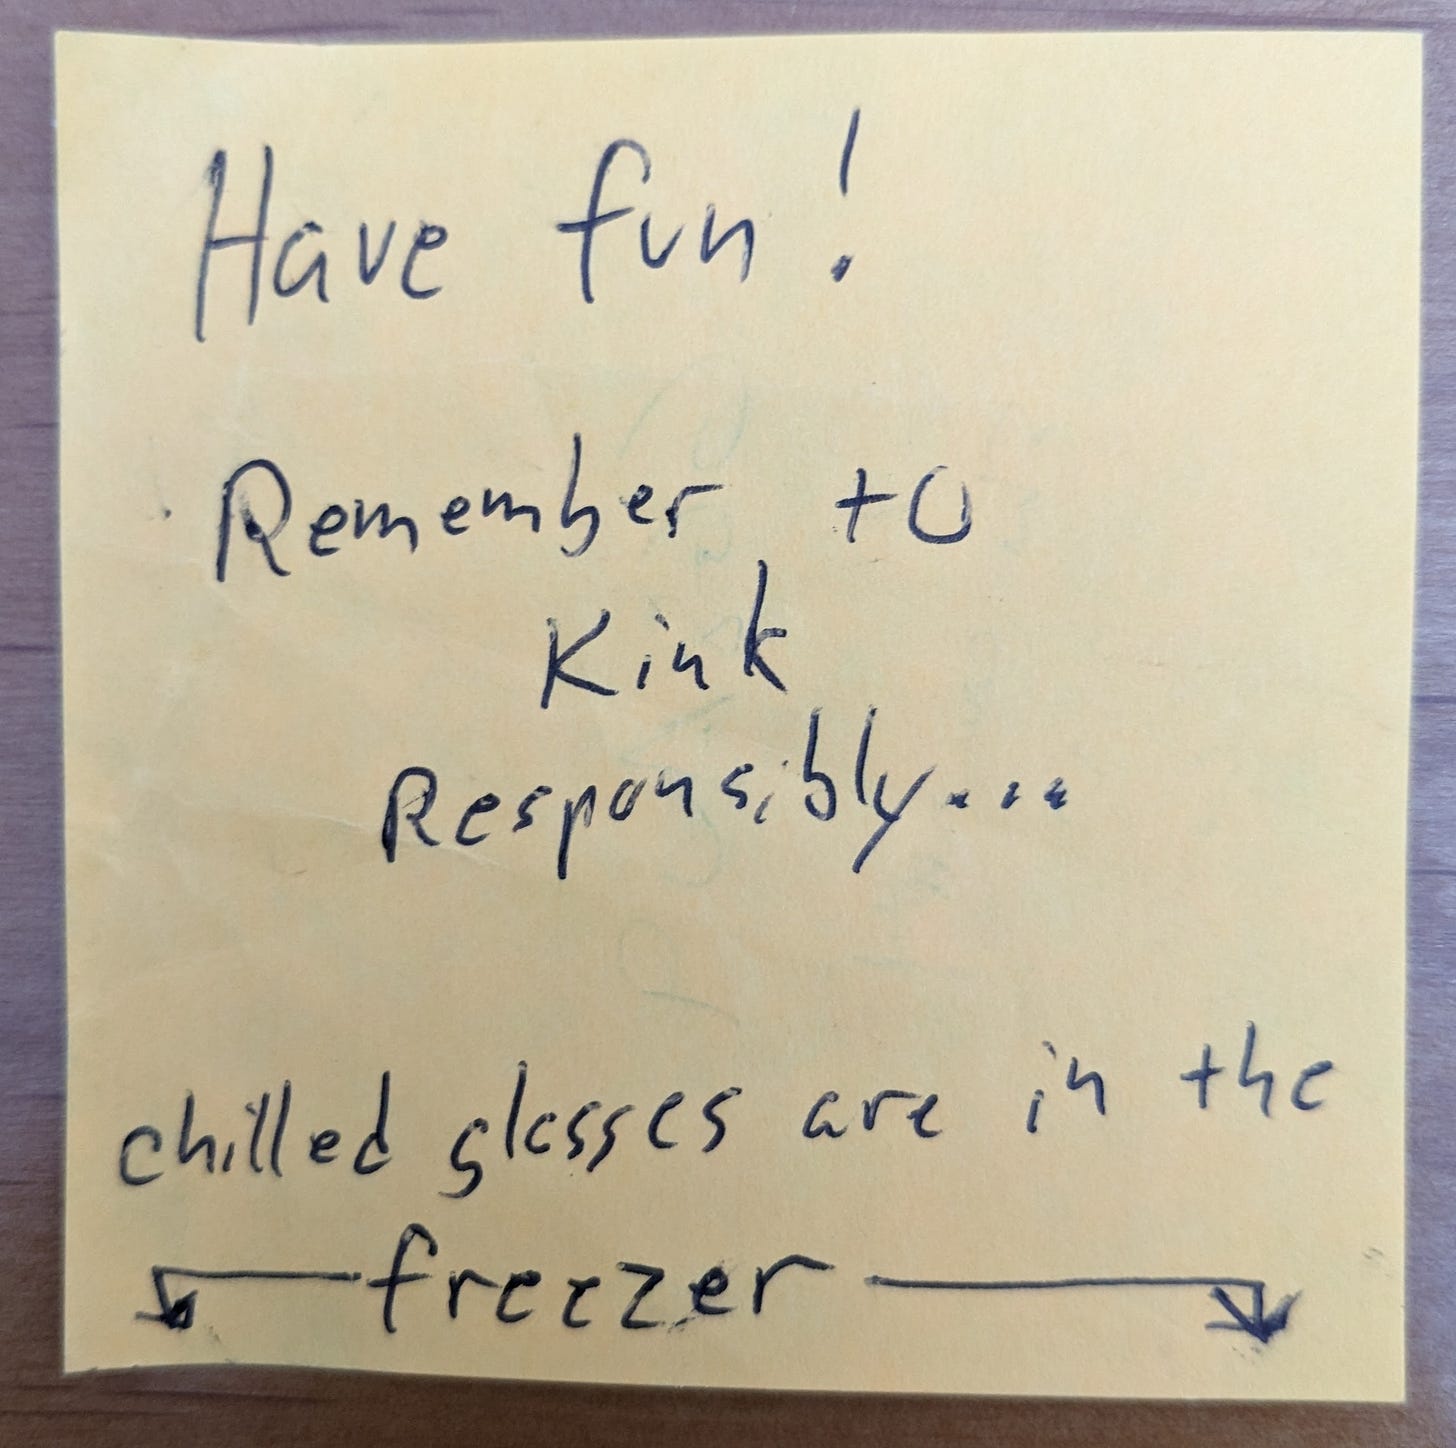 Have fun!
Remember to
Kink
Responsibly...
chilled glasses are in the
freezer